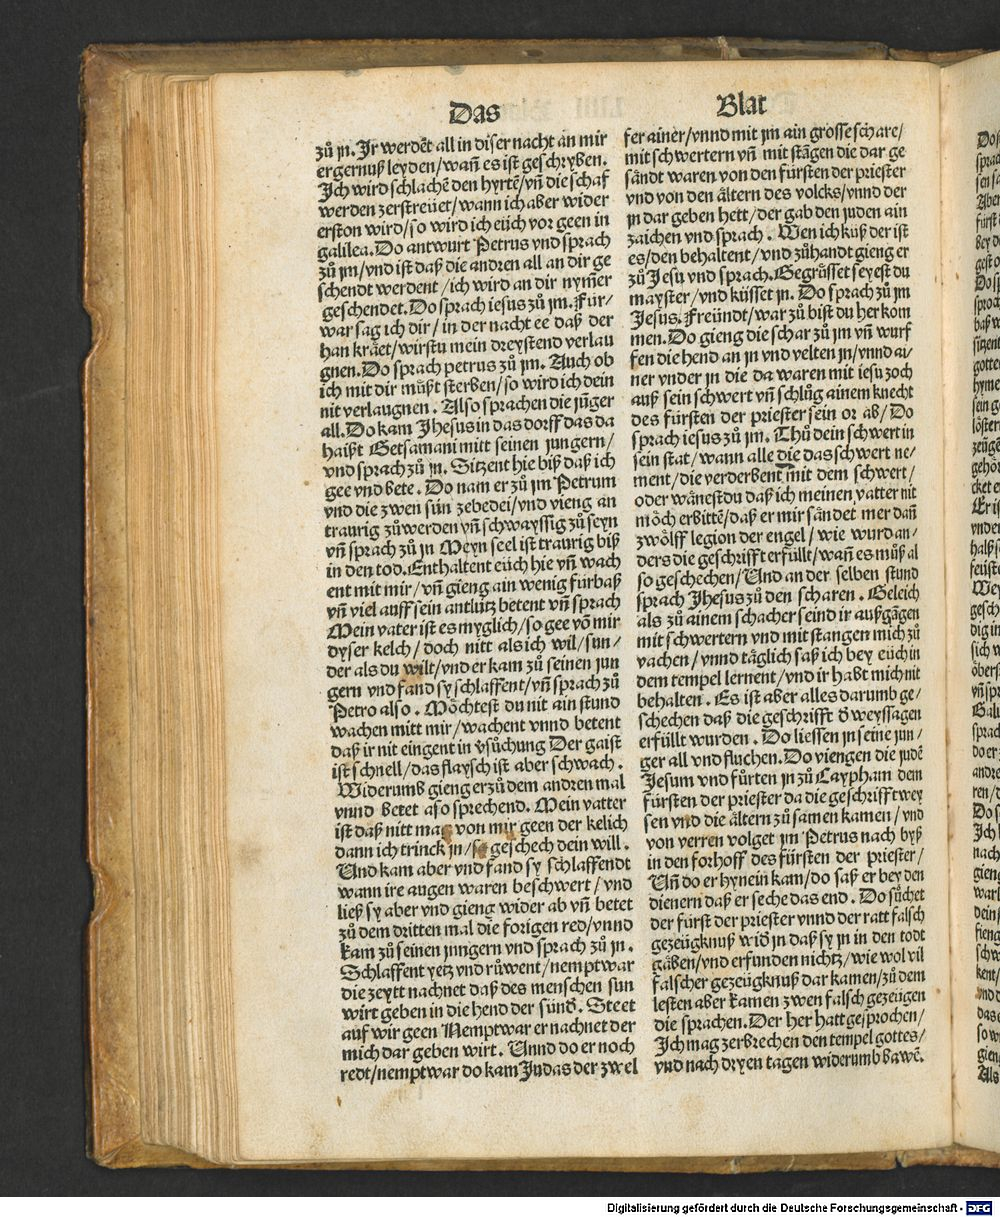 Das
Blat
zů jn. Jr werdẽt all in diser nacht an mir
ergernuß leyden/wañ es ist geschryben.
Jch wird schlachẽ den hyrtẽ/vñ die schaf
werden zerstreüet/wann ich aber wider
erston wird/so wird ich eüch vor geen in
galilea. Do antwurt Petrus vnd sprach
zů jm/vnd ist daß die andren all an dir ge
schendt werdent/ich wird an dir nym̃er
geschendet. Do sprach iesus zů jm. Für/
war sag ich dir/in der nacht ee daß der
han kräet/wirstu mein dreystend verlau
gnen. Do sprach petrus zů jm. Auch ob
ich mit dir müßt sterben/so wird ich dein
nit verlaugnen. Also sprachen die jũger
all. Do kam Jhesus in das dorff das da
haißt Getsamani mitt seinen jungern/
vnd sprach zů jn. Sitzent hie biß daß ich
gee vnd bete. Do nam er zů jm Petrum
vnd die zwen sün zebedei/vnd vieng an
traurig zůwerden vñ schwayssig zů seyn
vñ sprach zů jn Meyn seel ist traurig biß
in den tod. Enthaltent eüch hie vñ wach
ent mit mir/vñ gieng ain wenig fürbaß
vñ viel auff sein antlütz betent vñ sprach
Mein vater ist es myglich/so gee võ mir
dyser kelch/doch nitt als ich wil/sun/
der als du wilt/vnd er kam zů seinen jun
gern vnd fand sy schlaffent/vñ sprach zů
Petro also. Möchtest du nit ain stund
wachen mitt mir/wachent vnnd betent
daß ir nit eingent in vsůchung Der gaist
ist schnell/das flaysch ist aber schwach.
Widerumb gieng er zů dem andren mal
vnnd betet also sprechend. Mein vatter
ist daß nitt mag von mir geen der kelich
dann ich trinck jn/so geschech dein will.
Vnd kam aber vnd fand sy schlaffendt
wann ire augen waren beschwert/vnd
ließ sy aber vnd gieng wider ab vñ betet
zů dem dritten mal die forigen red/vnnd
kam zů seinen jungern vnd sprach zů jn.
Schlaffent yetz vnd růwent/nemptwar
die zeytt nachnet daß des menschen sun
wirt geben in die hend der sünd̃. Steet
auf wir geen Nemptwar er nachnet der
mich dar geben wirt. Vnnd do er noch
redt/nemptwar do kam Judas der zwel
fer ainer/vnnd mit jm ain grosse schare/
mit schwertern vñ mit stãgen die dar ge
sändt waren von den fürsten der priester
vnd von den ältern des volcks/vnnd der
jn dar geben hett/der gab den juden ain
zaichen vnd sprach. Wen ich küß der ist
es/den behaltent/vnd zůhandt gieng er
zů Jesu vnd sprach. Gegrüsset seyest du
mayster/vnd küsset jn. Do sprach zů jm
Jesus. Freündt/war zů bist du her kom
men. Do gieng die schar zů jm vñ wurf
fen die hend an jn vnd velten jn/vnnd ai/
ner vnder jn die da waren mit iesu zoch
auß sein schwert vñ schlůg ainem knecht
des fürsten der priester sein or ab/Do
sprach iesus zů jm. Thů dein schwert in
sein stat/wann alle die das schwert ne/
ment/die verderbent mit dem schwert/
oder wänestdu daß ich meinen vatter nit
möch erbittẽ/daß er mir sändet mer dañ
zwölff legion der engel/wie wurd an/
ders die geschrifft erfüllt/wañ es můß al
so geschechen/Vnd an der selben stund
sprach Jhesus zů den scharen. Geleich
als zů ainem schacher seind ir außgãgen
mit schwertern vnd mit stangen mich zů
vachen/vnnd täglich saß ich bey eüch in
dem tempel lernent/vnd ir habt mich nit
behalten. Es ist aber alles darumb ge/
schechen daß die geschrifft d̃ weyssagen
erfüllt wurden. Do liessen jn seine jun/
ger all vnd fluchen. Do viengen die judẽ
Jesum vnd fůrten jn zů Caypham dem
fürsten der priester da die geschrifft wey
sen vnd die ältern zůsamen kamen/vnd
von verren volget jm Petrus nach byß
in den forhoff des fürsten der priester/
Vñ do er hynein kam/do saß er bey den
dienern daß er seche das end. Do sůchet
der fürst der priester vnnd der ratt falsch
gezeügknuß wid̃ jn daß sy jn in den todt
gäben/vnd erfunden nichtz/wie wol vil
falscher gezeügknuß dar kamen/zů dem
lesten aber kamen zwen falsch gezeügen
die sprachen. Der her hatt gesprochen/
Jch mag zerbrechen den tempel gottes/
vnd nach dryen tagen widerumb bawẽ.
Digitalisierung gefördert durch die Deutsche Forschungsgemeinschaft - DFG